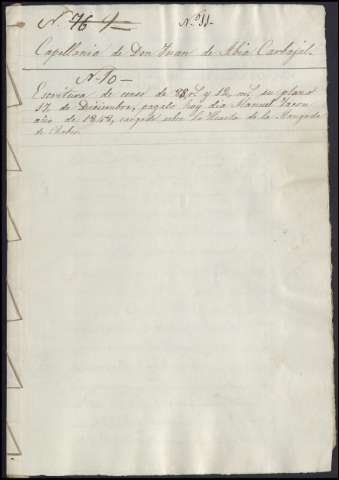 N. 76 N.º 11-
Capellania de Don Juan de Abio Carbajal.
N. 10-
Escritura de censo de 38, r.s y 12, m.s su plazo
17, de Diciembre, pagalo hoy dia Manuel
año de 1848, cargado sobre la Huerta de la
de